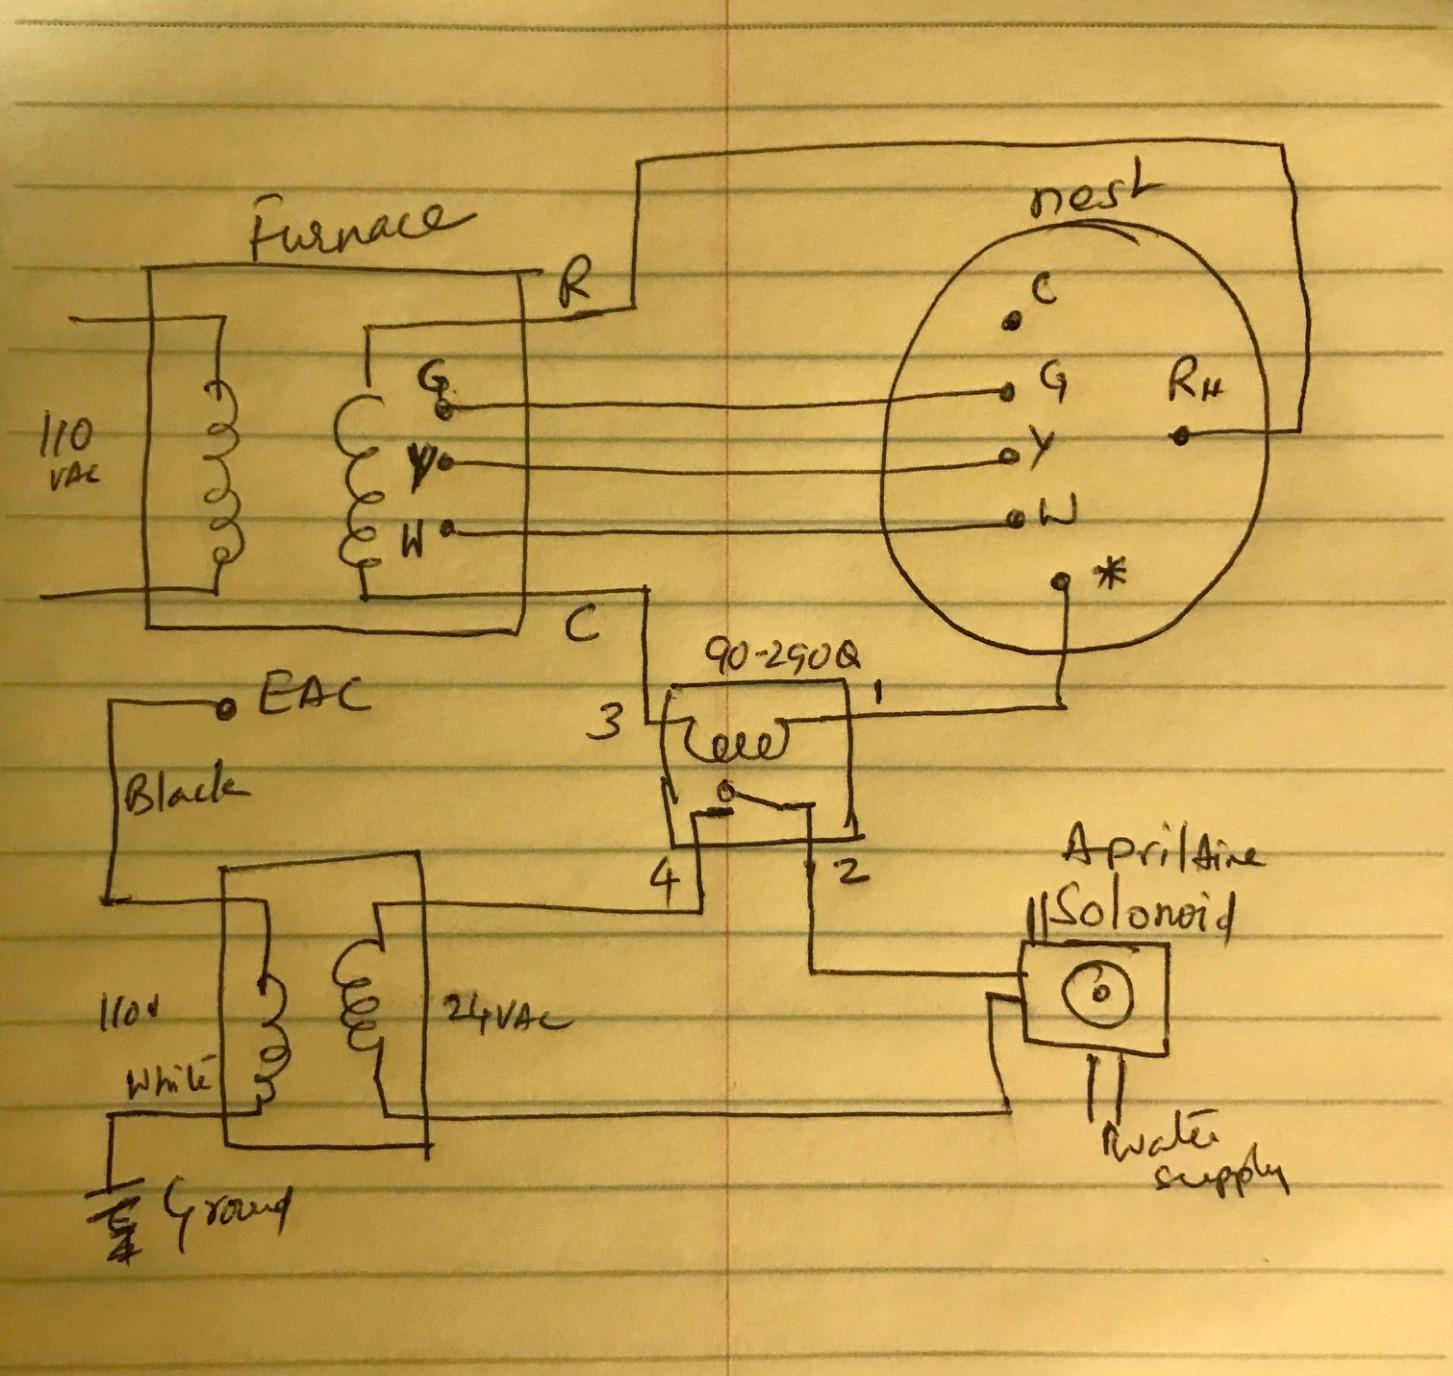 Furnace
R
nest
C
G
G
RH
110
VAC
Y
Y
W
W
*
C
90-290Ω
EAC
1
3
Black
4
2
AprilAire
Solonoid
110v
24VAC
White
Water
supply
Ground